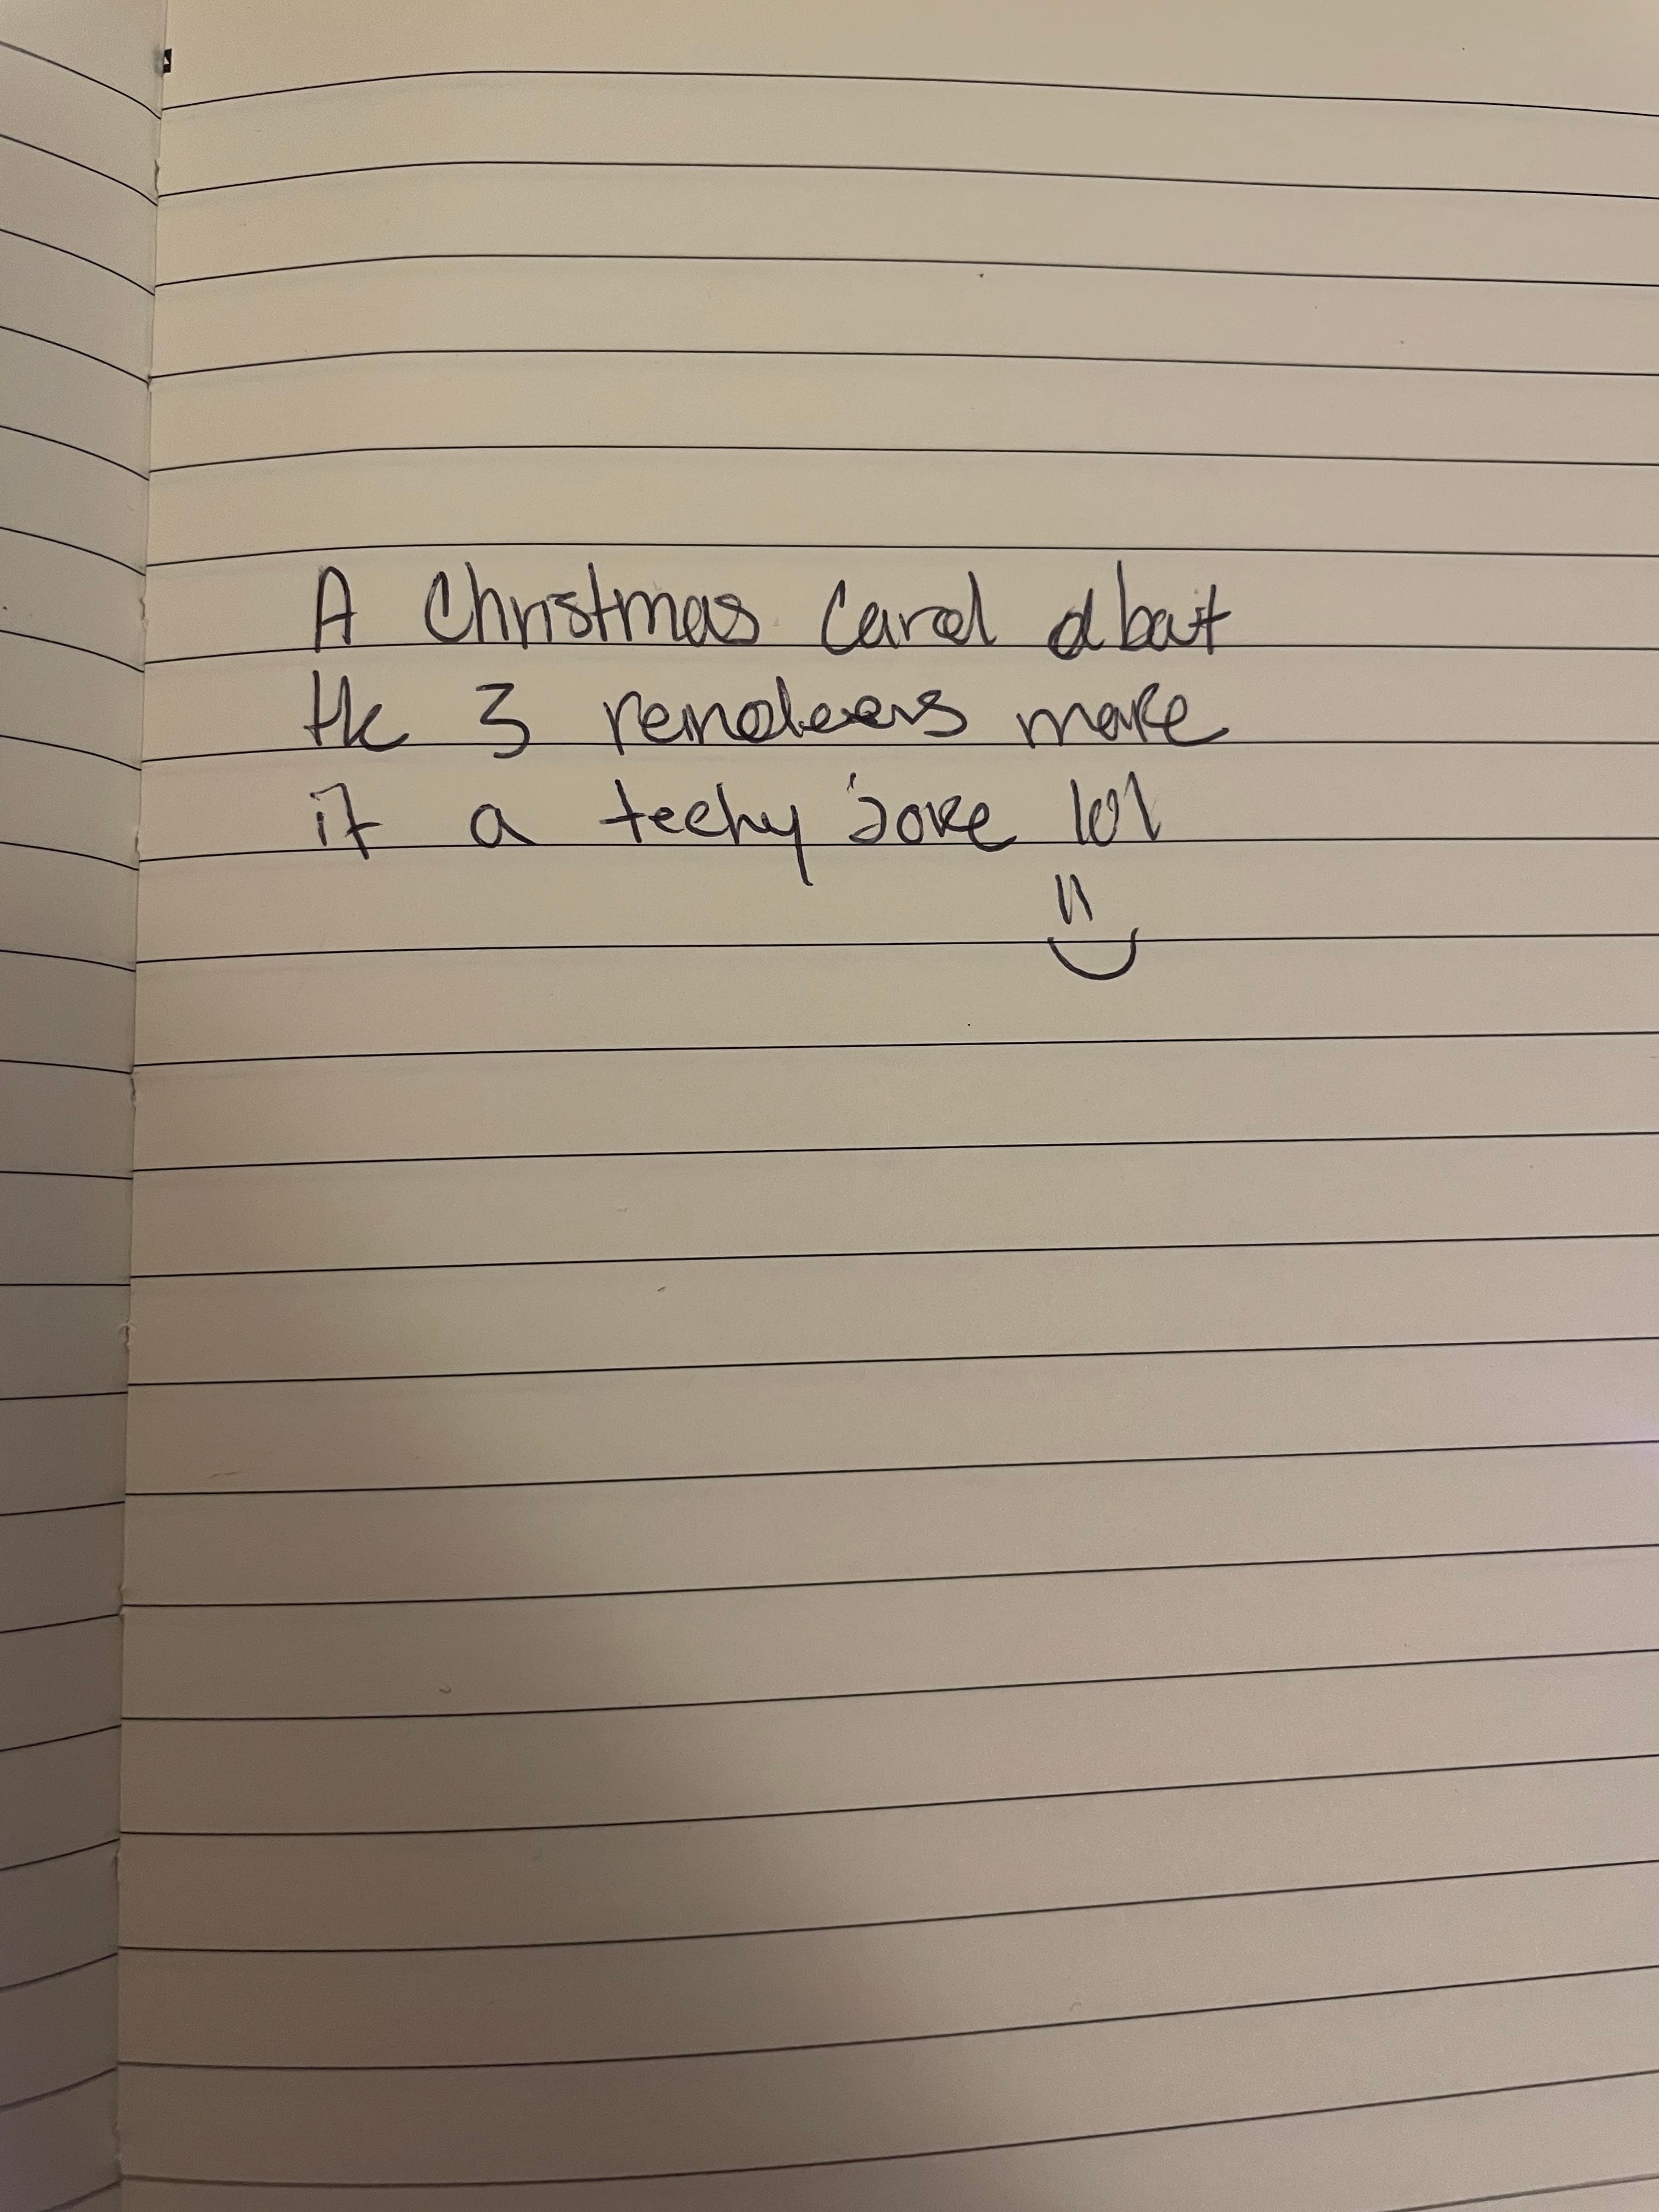 A Christmas Carol about
the 3 reindeers make
it a techy joke lol